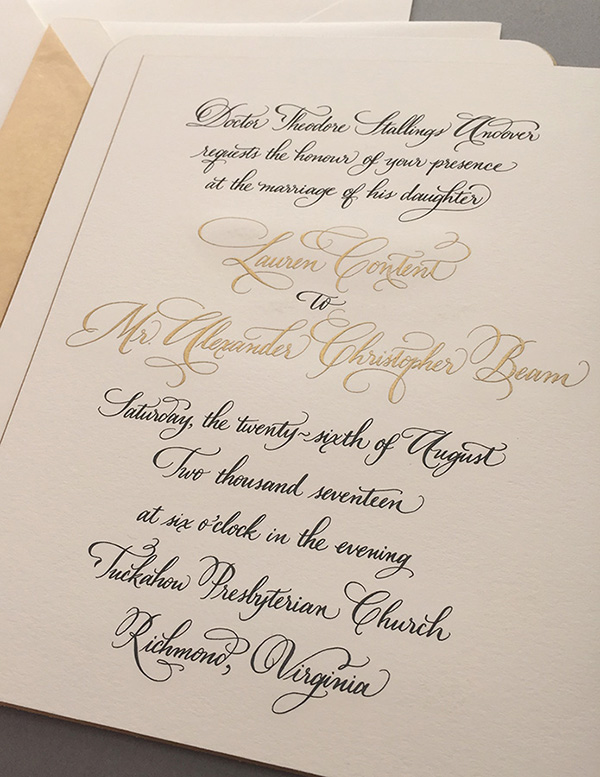 Doctor Theodore Stallings Andover
requests the honour of your presence
at the marriage of his daughter
Lauren Content
to
Mr. Alexander Christopher Beam
Saturday, the twenty-sixth of August
Two thousand seventeen
at six o'clock in the evening
Tuckahoe Presbyterian Church
Richmond, Virginia